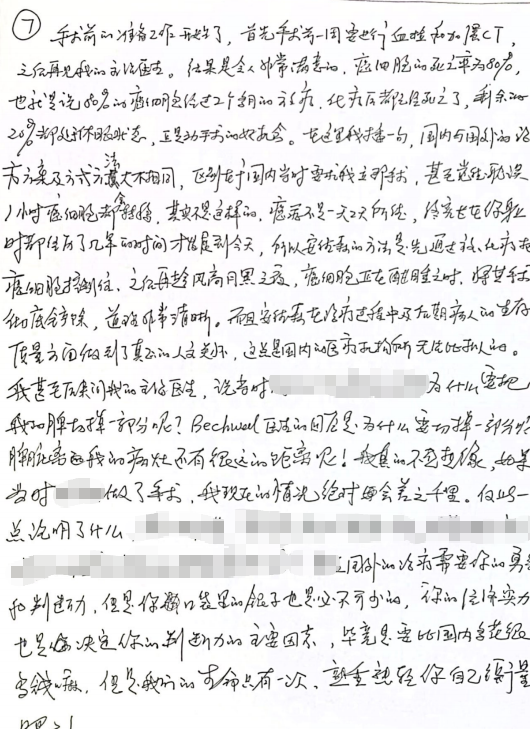 ⑦ 手术前的准备工作开始了，首先手术前一周要进行血检和加强CT，
之后再见我的主治医生。结果是令人非常满意的，癌细胞的死亡率为80%，
也就是说80%的癌细胞经过2个月的放疗，化疗后都已经死亡了，剩余的
20%都处于休眠状态，正是动手术的好机会。在这里我插一句，国内与国外的治
疗方案及方式方法真大不相同，
1小时癌细胞都会转移，其实不是这样的，癌症不是一天2天所致，
时都经历了几年的时间才发展到今天，所以安德森的方法是先通过放、化疗把
癌细胞控制住，之后再趁风高月黑之夜，癌细胞正在酣睡之时，将其手术
彻底合铲除，道路非常清晰。而且安德森在治疗过程中及后期病人的生存
质量方面做到了真正的人文关怀，这是国内的医疗机构所无法比拟的。
我甚至后来问我的主治医生，说当时 为什么要把
我的脾切掉一部分呢？Bechwel医生的回答是为什么要切掉一部分呢
脾脏离你我的病灶还有很远的距离呢！我真的不敢想像，如果
当时 做了手术，我现在的情况绝对会差之千里。仅此一
点说明了什么
在国外的治病需要你的勇气
和判断力，但是你口袋里的银子也是必不可少的，你的经济实力
也是决定你的判断力的主要因素，毕竟是要比国内多花很
多钱嘛，但是我们的寿命只有一次，孰重孰轻你自己衡量
吧！